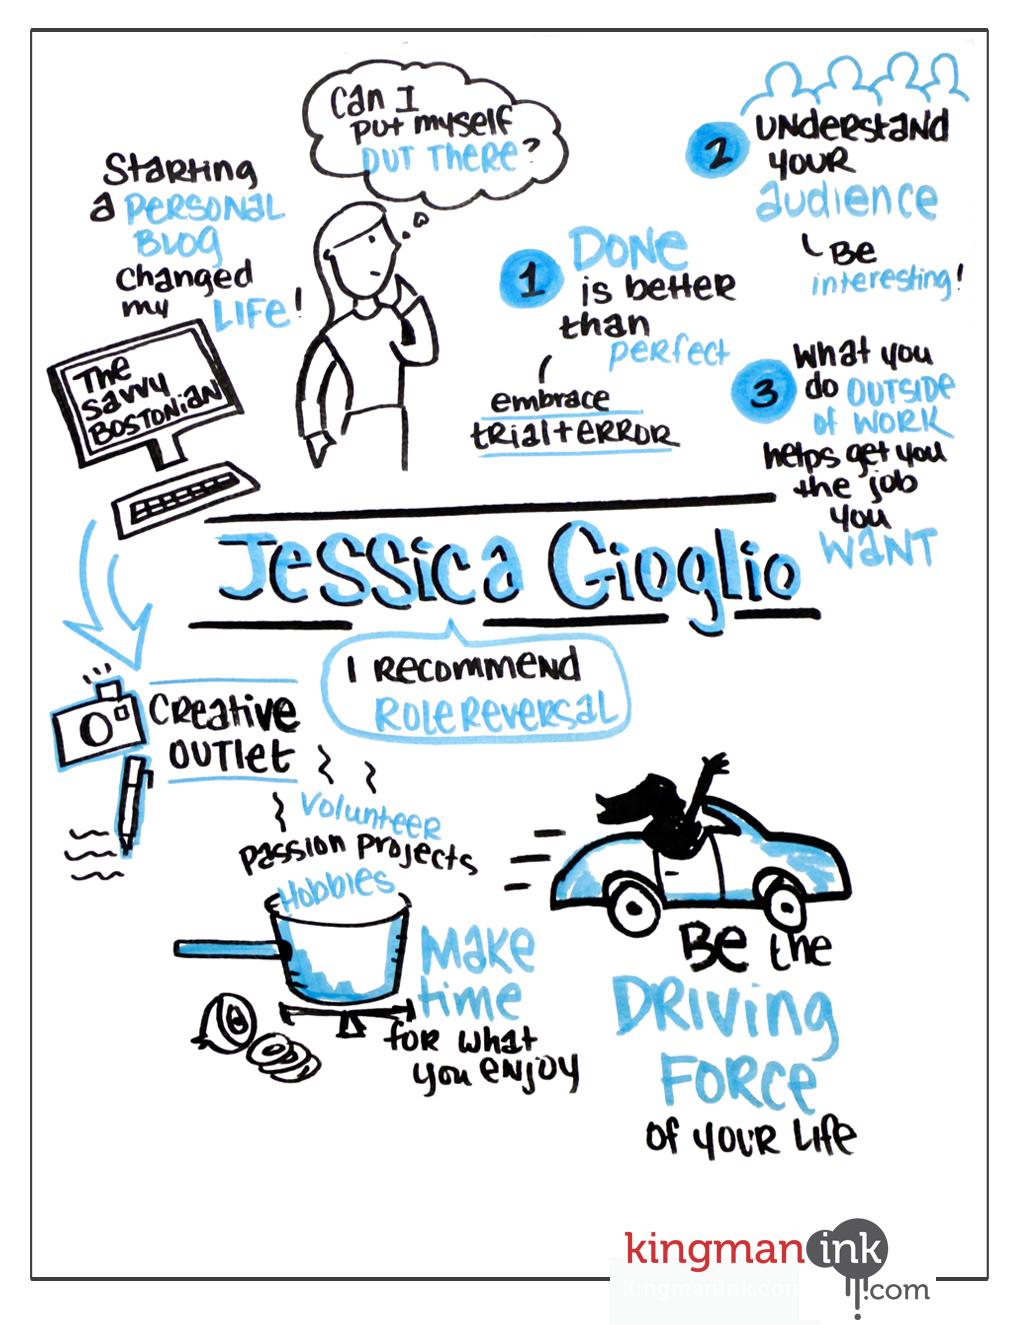 Can I
put myself
OUT THERE?
Starting
a PERSONAL
BLOG
changed
my LIFE!
The
Savvy
BOSTONIAN
1
DONE
is better
than
perfect
embrace
trial + ERROR
2
Understand
your
audience
Be
interesting!
3
What you
do OUTSIDE
of WORK
helps get you
the job
you
WANT
Jessica Gioglio
I RECOMMEND
ROLE REVERSAL
CREATIVE
OUTLET
Volunteer
passion projects
Hobbies
MAKE
time
for what
you enjoy
BE the
DRIVING
FORCE
of your Life
kingmanink
.com
KingmanInk.com